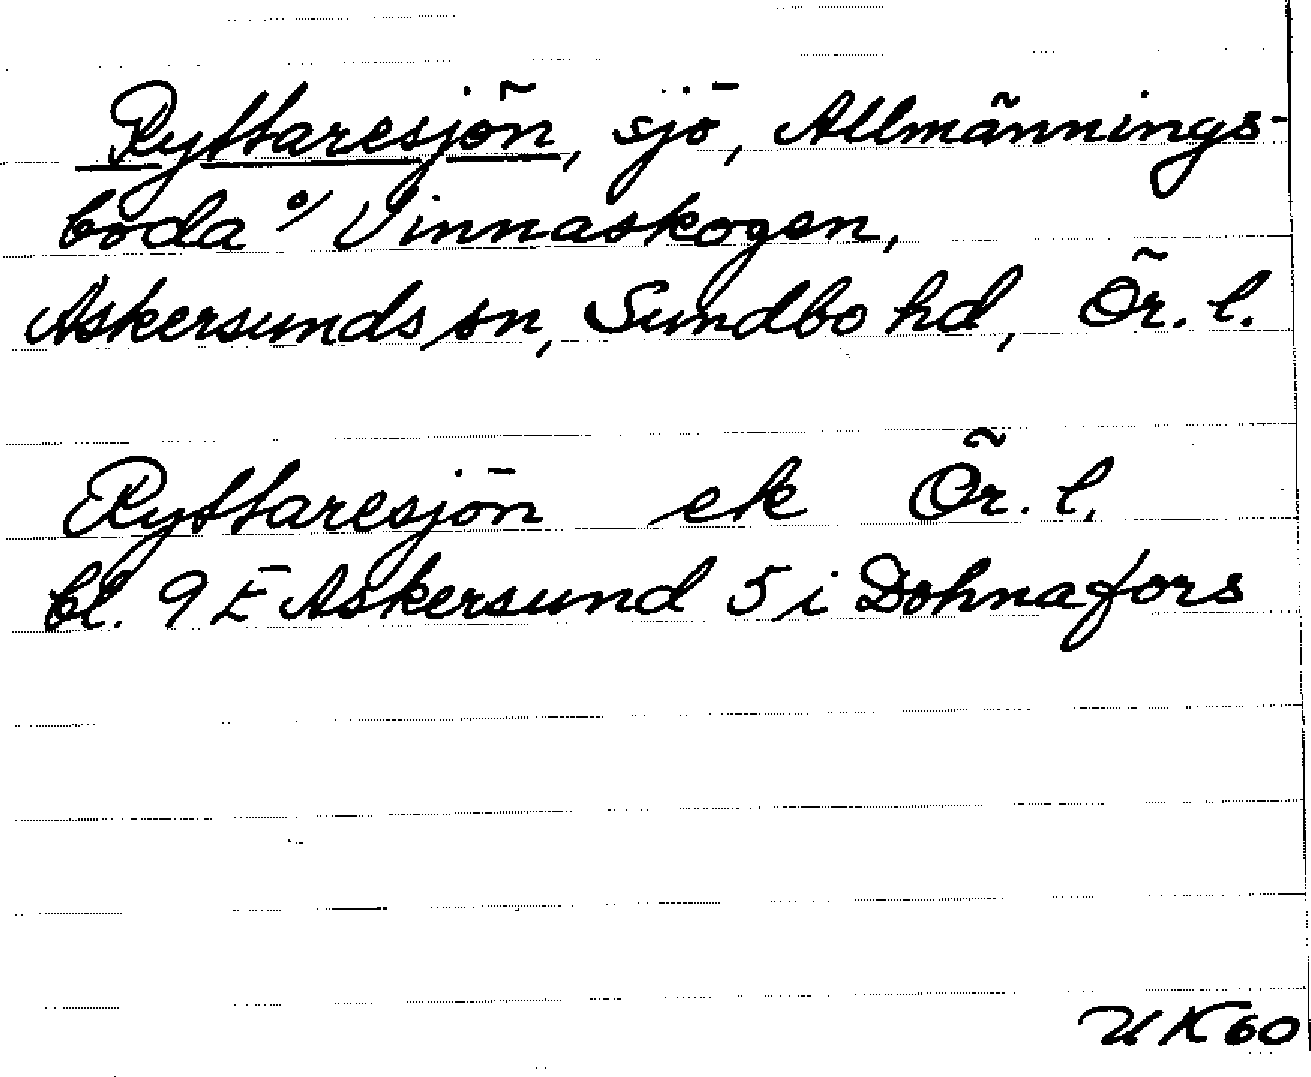 Ryttaresjön, sjö, Allmännings-
boda o/ Vinnaskogen,
Askersunds sn, Sundbo hd, Ör. l.
Ryttaresjön ek Ör. l.
bl. 9 E Askersund 5 i Dohnafors
UK60